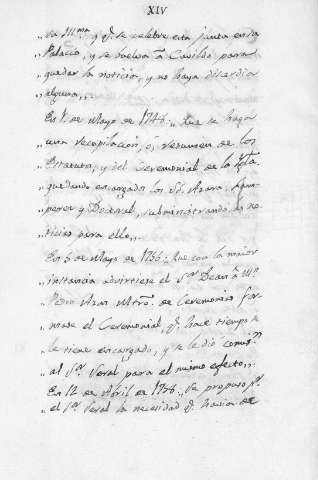 XIV
„ sa Illma y q.e se celebre esta junta en su
„ Palacio, y se vuelva â Cavildo para
„ quedar la noticia, y no haya discordia
„ alguna „
En 1 de Mayo de 1746: „ Que se haga
„ una recopilacion, ô resumen de los
„ Estatutos, y del Ceremonial de la Igla
„ quedando encargado los SS. Azara, Lam-
„ perez y Doctoral, subministrando las no-
„ ticias para ello „
En 5 de Mayo de 1756: „ Que con la maior
„ instancia advirtiese el S.or Dean â M.n
„ Pedro Aznar Mtrō. de Ceremonias for-
„ mase el Ceremonial q.e hace tiempo se
„ le tiene encargado, y se le dio comis.n
„ al S.or Peral para el mismo efecto „
„ En 12 de Abril de 1758. „ Se propuso p.r
„ el S.or Peral la necesidad q.e havia de